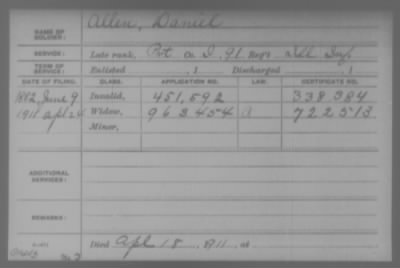 Allen, Daniel
NAME OF SOLDIER:
SERVICE: Late rank, Pvt Co. I, 91 Reg't Ill Inf.
TERM OF SERVICE: Enlisted , 1 Discharged , 1
DATE OF FILING. CLASS. APPLICATION NO. LAW. CERTIFICATE NO.
1882, June 9 Invalid, 451,592 338384
1911 Apl 24 Widow, 963454 722513
Minor,
ADDITIONAL SERVICES:
REMARKS:
Died Apl 18, 1911, at